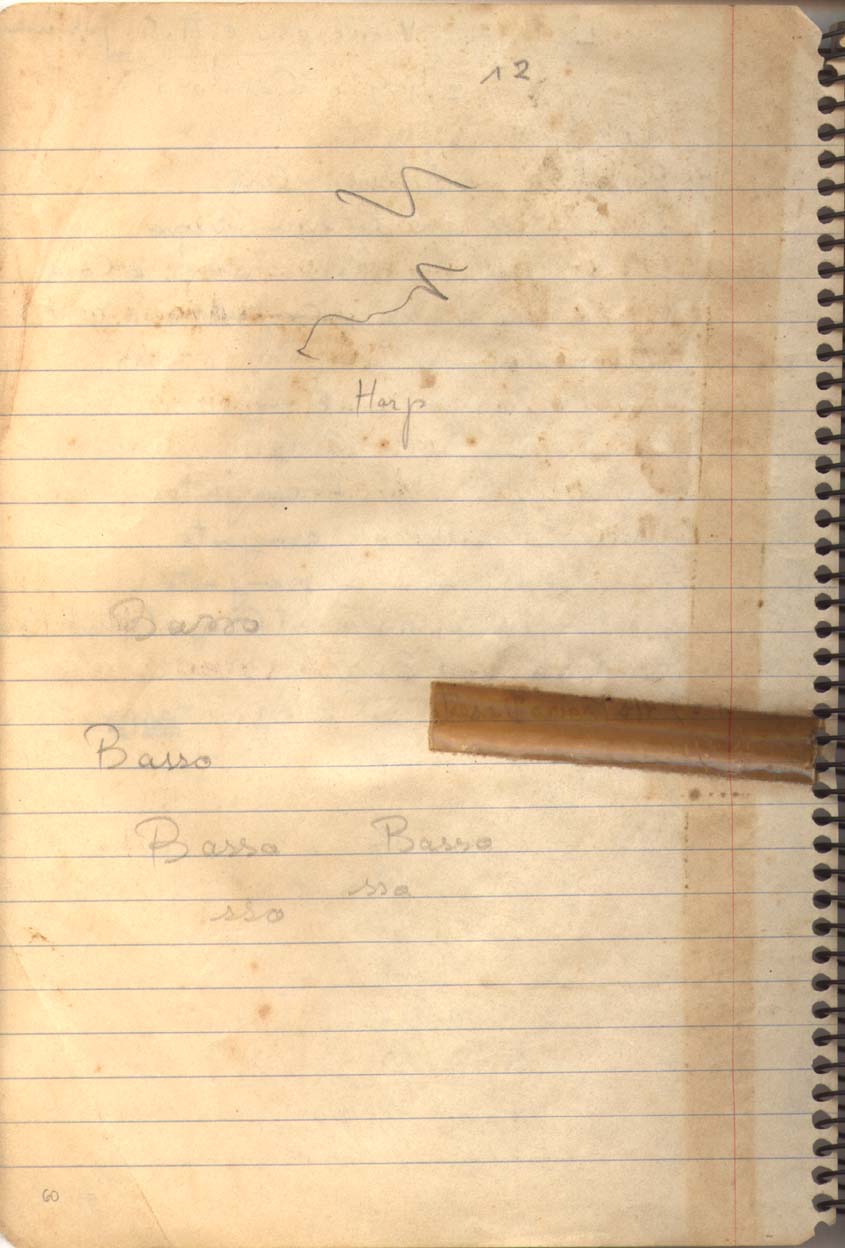 12
Harp
Basso
Basso
Basso Basso
sso
sso
60